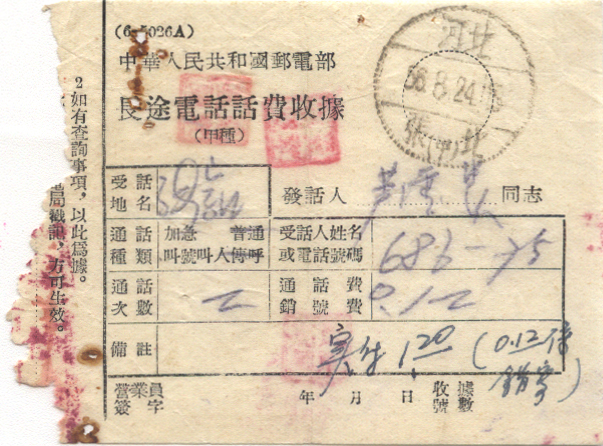 (6-5026A)
中華人民共和國郵電部
長途電話話費收據
(甲種)
河北
56.8.24.
張 北
2如有查詢事項,以此為據。
局戳記,方可生效。
受話地名
發話人 同志
通話種類 加急 普通 叫號 叫人 傳呼
受話人姓名或電話號碼 686-75
通話次數 二
通話費 銷號費 0.12
備註 实付 1.20 (0.12 錯寫)
營業員簽字 年 月 日 收據號數